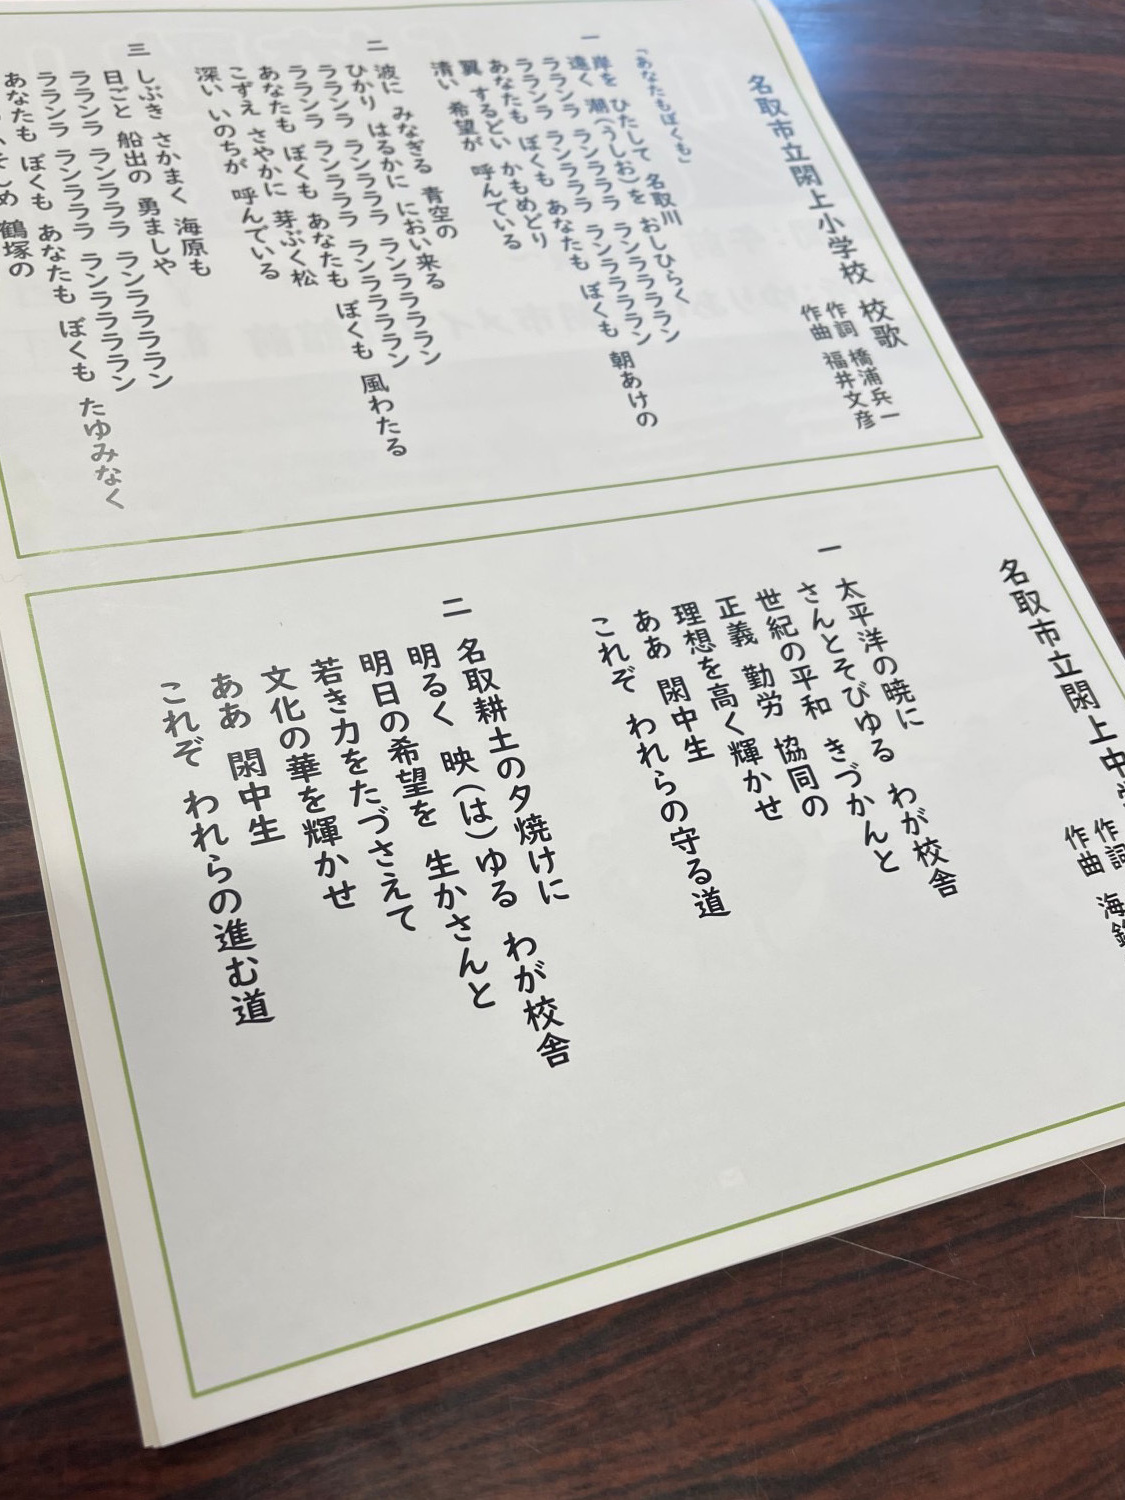 名取市立閖上小学校 校歌
作詞 橋浦兵一
作曲 福井文彦
「あなたもぼくも」
一
岸を ひたして 名取川
遠く 潮(うしお)を おしひらく
ラランラ ランラララ ランラララララン
ラランラ ランラララ ランラララララン
あなたも ぼくも あなたも ぼくも 朝あけの
翼 するどい かもめどり
清い 希望が 呼んでいる
二
波に みなぎる 青空の
ひかり はるかに におい来る
ラランラ ランラララ ランラララララン
ラランラ ランラララ ランラララララン
あなたも ぼくも あなたも ぼくも 風わたる
こずえ さやかに 芽ぶく松
深い いのちが 呼んでいる
三
しぶき さかまく 海原も
日ごと 船出の 勇ましや
ラランラ ランラララ ランラララララン
ラランラ ランラララ ランラララララン
あなたも ぼくも あなたも ぼくも たゆみなく
鶴塚の
名取市立閖上中
作詞 海
作曲
一
太平洋の暁に わが校舎
さんとそびゆる きづかんと
世紀の平和 協同の
正義 勤労 輝かせ
理想を高く
ああ 閖中生
これぞ われらの守る道
二
名取耕土の夕焼けに わが校舎
明るく 映(は)ゆる
明日の希望を 生かさんと
若き力をたづさえて
文化の華を輝かせ
ああ 閖中生
これぞ われらの進む道